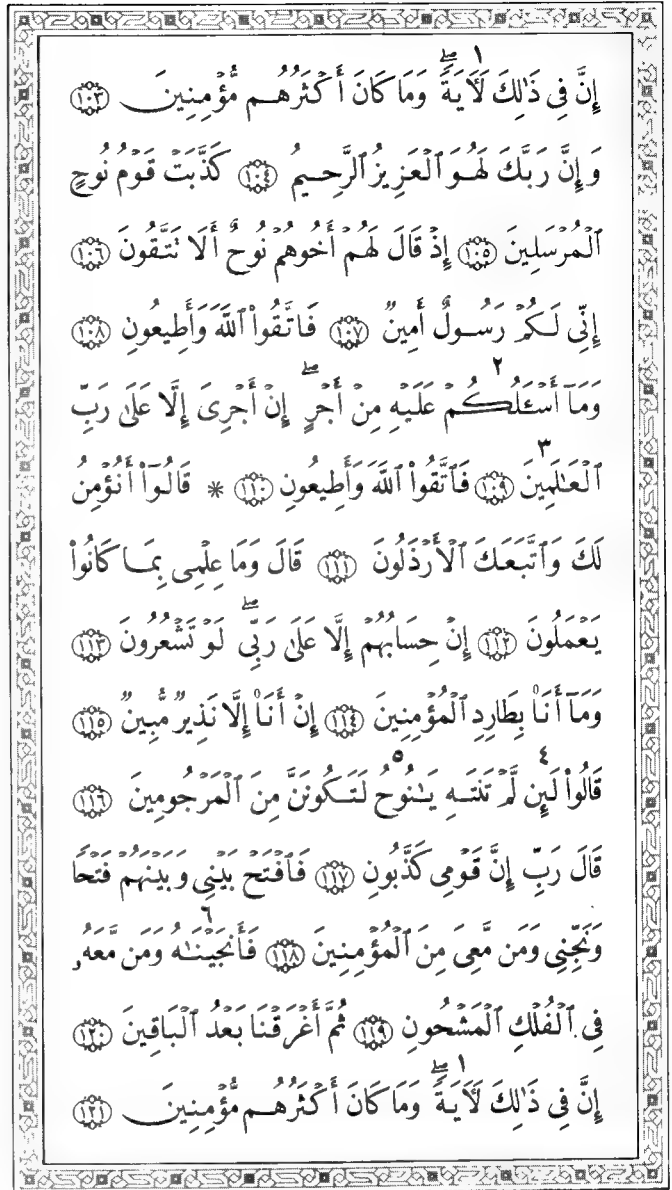 إِنَّ فِي ذَٰلِكَ لَأٓيَةٗۖ ١ وَمَا كَانَ أَكۡثَرُهُم مُّؤۡمِنِينَ ١٠٣
وَإِنَّ رَبَّكَ لَهُوَ ٱلۡعَزِيزُ ٱلرَّحِيمُ ١٠٤ كَذَّبَتۡ قَوۡمُ نُوحٍ
ٱلۡمُرۡسَلِينَ ١٠٥ إِذۡ قَالَ لَهُمۡ أَخُوهُمۡ نُوحٌ أَلَا تَتَّقُونَ ١٠٦
إِنِّي لَكُمۡ رَسُولٌ أَمِينٞ ١٠٧ فَٱتَّقُواْ ٱللَّهَ وَأَطِيعُونِ ١٠٨
وَمَآ أَسۡـَٔلُكُمۡ عَلَيۡهِ مِنۡ أَجۡرٍۖ ٢ إِنۡ أَجۡرِيَ إِلَّا عَلَىٰ رَبِّ
ٱلۡعَٰلَمِينَ ٣ ١٠٩ فَٱتَّقُواْ ٱللَّهَ وَأَطِيعُونِ ١١٠ * قَالُوٓاْ أَنُؤۡمِنُ
لَكَ وَٱتَّبَعَكَ ٱلۡأَرۡذَلُونَ ١١١ قَالَ وَمَا عِلۡمِي بِمَا كَانُواْ
يَعۡمَلُونَ ١١٢ إِنۡ حِسَابُهُمۡ إِلَّا عَلَىٰ رَبِّيۖ لَوۡ تَشۡعُرُونَ ١١٣
وَمَآ أَنَا۠ بِطَارِدِ ٱلۡمُؤۡمِنِينَ ١١٤ إِنۡ أَنَا۠ إِلَّا نَذِيرٞ مُّبِينٞ ١١٥
قَالُواْ لَئِن ٤ لَّمۡ تَنتَهِ يَٰنُوحُ ٥ لَتَكُونَنَّ مِنَ ٱلۡمَرۡجُومِينَ ١١٦
قَالَ رَبِّ إِنَّ قَوۡمِي كَذَّبُونِ ١١٧ فَٱفۡتَحۡ بَيۡنِي وَبَيۡنَهُمۡ فَتۡحٗا
وَنَجِّنِي وَمَن مَّعِيَ مِنَ ٱلۡمُؤۡمِنِينَ ١١٨ فَأَنجَيۡنَٰهُ ٦ وَمَن مَّعَهُۥ
فِي ٱلۡفُلۡكِ ٱلۡمَشۡحُونِ ١١٩ ثُمَّ أَغۡرَقۡنَا بَعۡدُ ٱلۡبَاقِينَ ١٢٠
إِنَّ فِي ذَٰلِكَ لَأٓيَةٗۖ ١ وَمَا كَانَ أَكۡثَرُهُم مُّؤۡمِنِينَ ١٢١